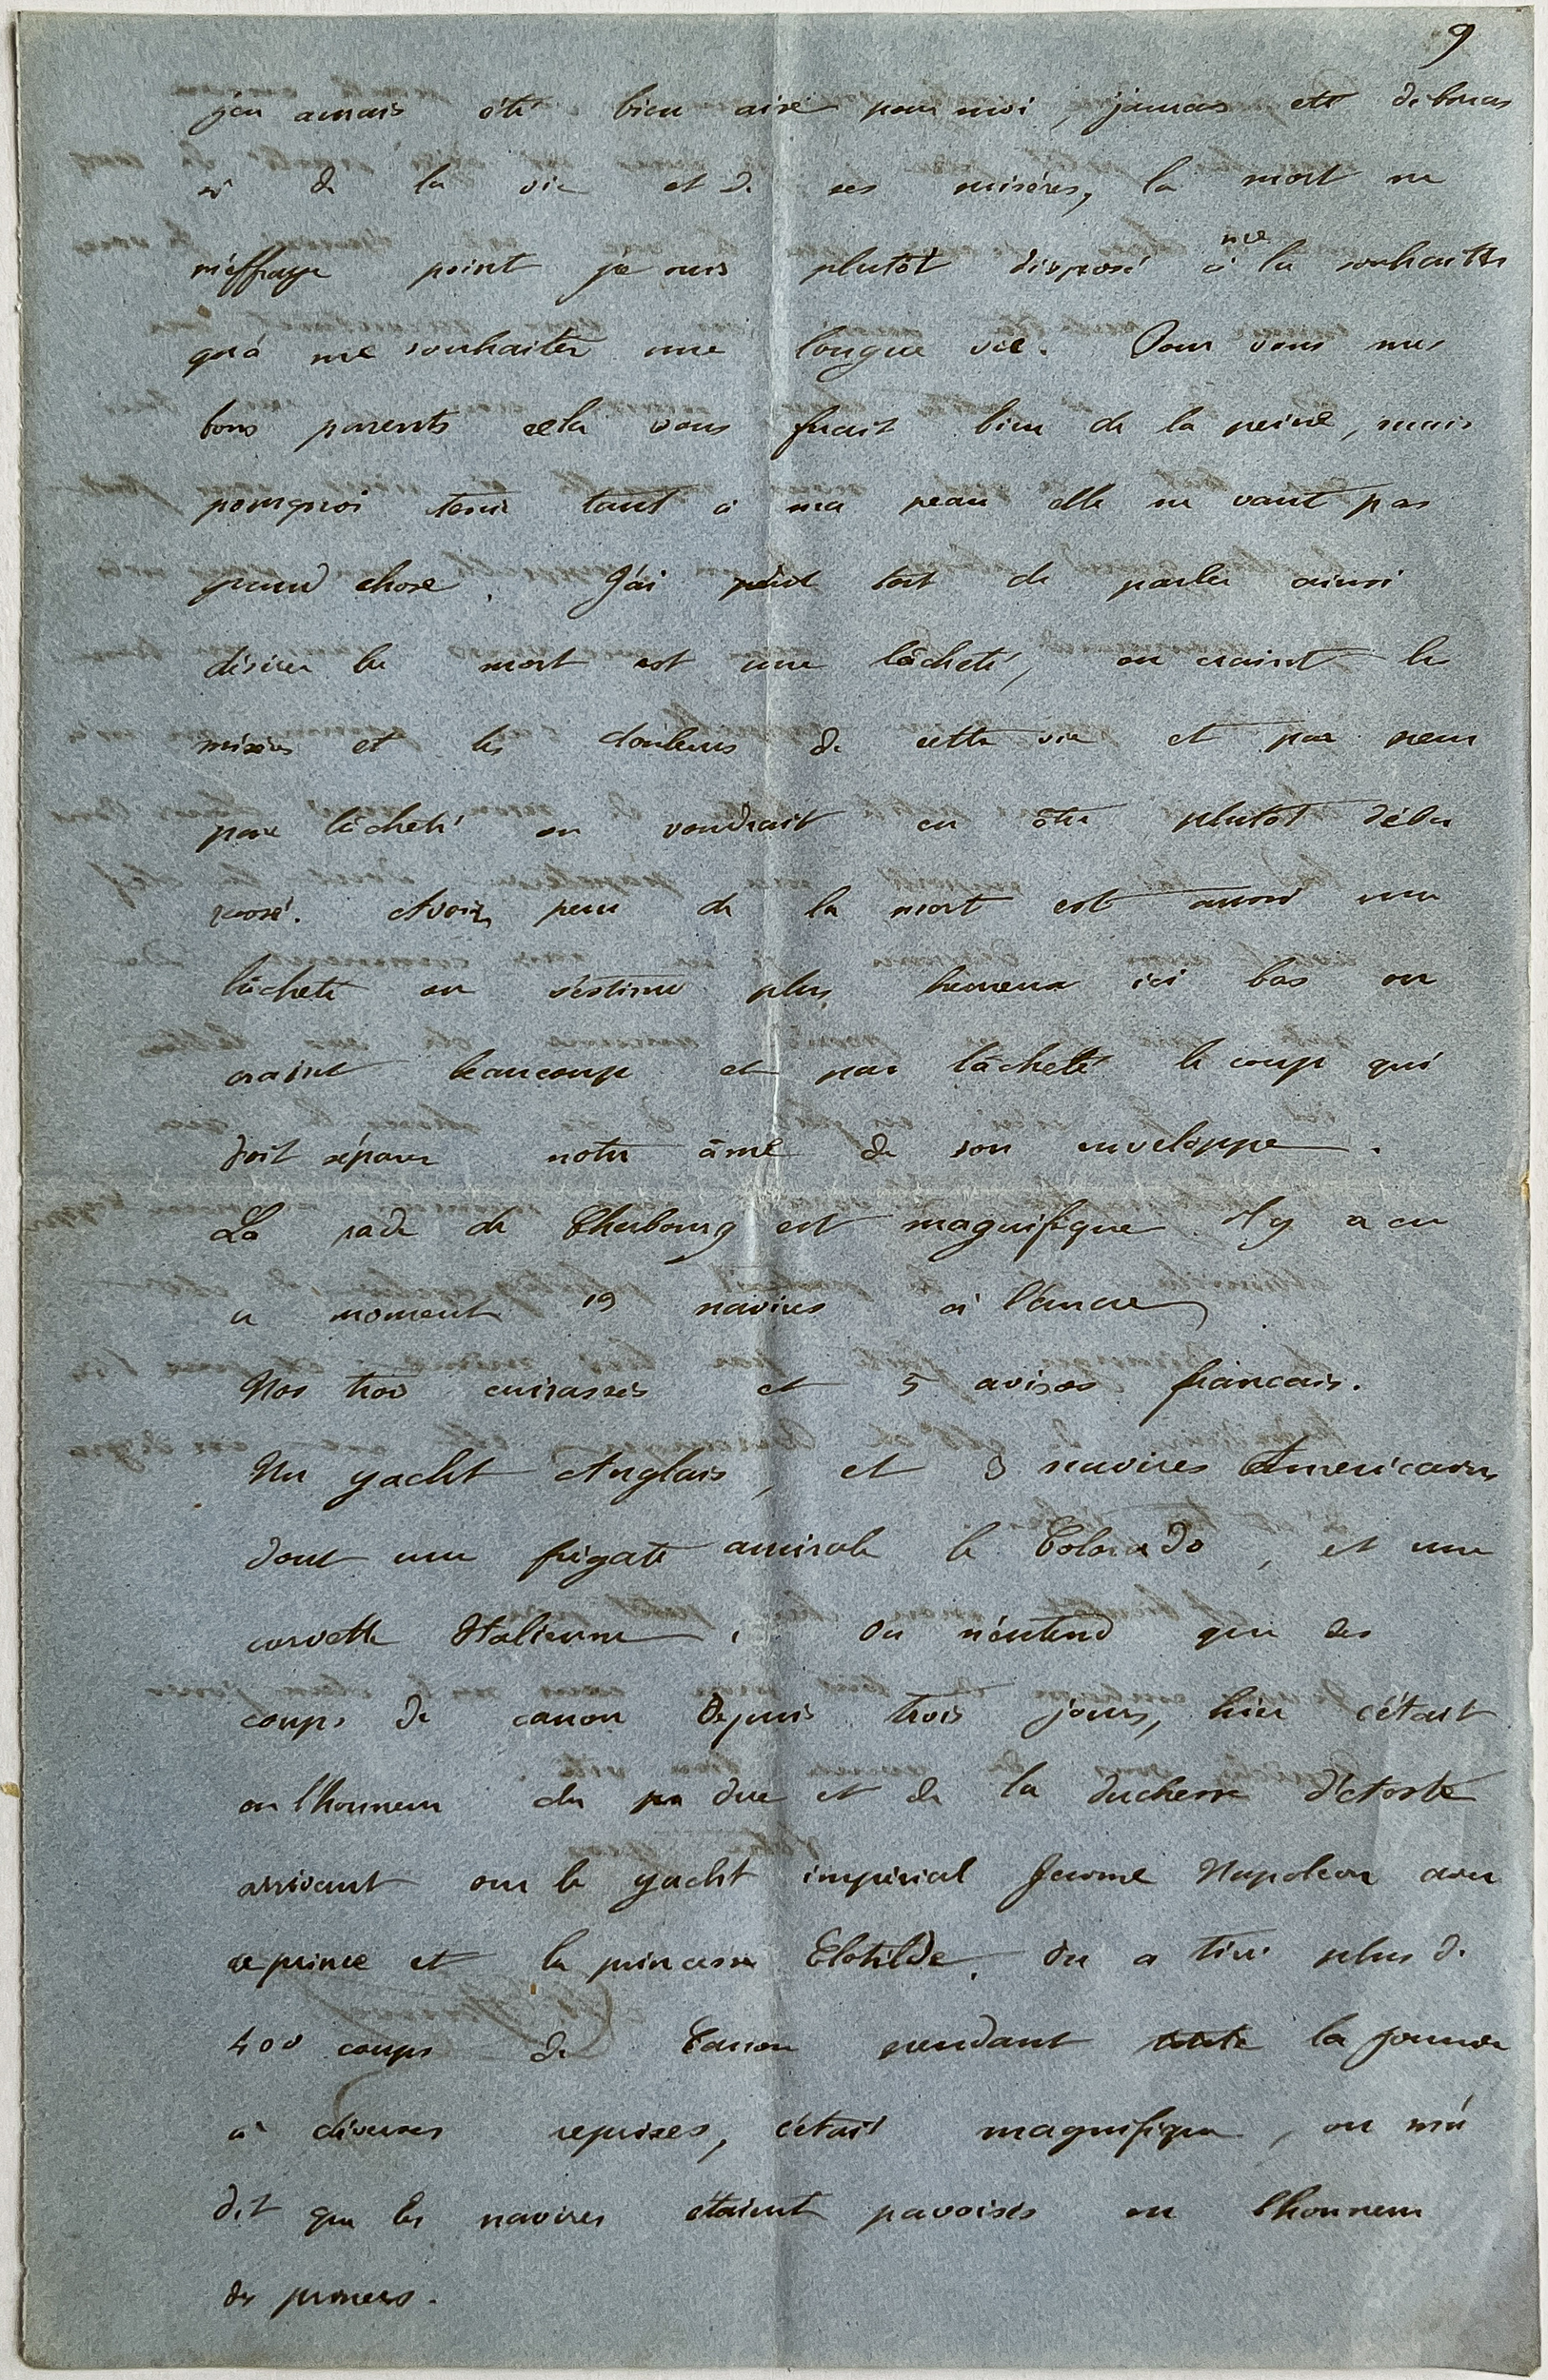 9
j'en aurais été bien aise pour moi, j'aurais été débaras
sé de la vie et de ses misères, la mort ne
m'effraye point je suis plutôt disposé à me la souhaiter
qu'à me souhaiter une longue vie. Pour vous mes
bons parents cela vous ferait bien de la peine, mais
pourquoi tenir tant à ma peau elle ne vaut pas
grand chose. J'ai tort de parler ainsi
désirer la mort est une lâcheté, on craint les
misères et les douleurs de cette vie et par peur
par lâcheté on voudrait en être plutôt déba
rassé. Avoir peur de la mort est aussi une
lâcheté on s'estime plus heureux ici bas on
craint beaucoup et par lâcheté le coup qui
doit séparer notre âme de son enveloppe.
La rade de Cherbourg est magnifique il y a en
ce moment 19 navires à l'ancre
Nos trois cuirassés et 5 avisos francais.
Un yacht Anglais, et 3 navires Americains
dont une frégate amirale le Colorado, et une
corvette Italienne, on n'entend que des
coups de canon depuis trois jours, hier c'était
en l'honneur du duc et de la duchesse d'Aoste
arrivant sur le yacht impérial Jerome Napoleon avec
le prince et la princesse Clotilde. On a tiré plus de
400 coups de Canon pendant toute la journée
à diverses reprises, c'était magnifique, on m'a
dit que les navires étaient pavoisés en l'honneur
des princes.